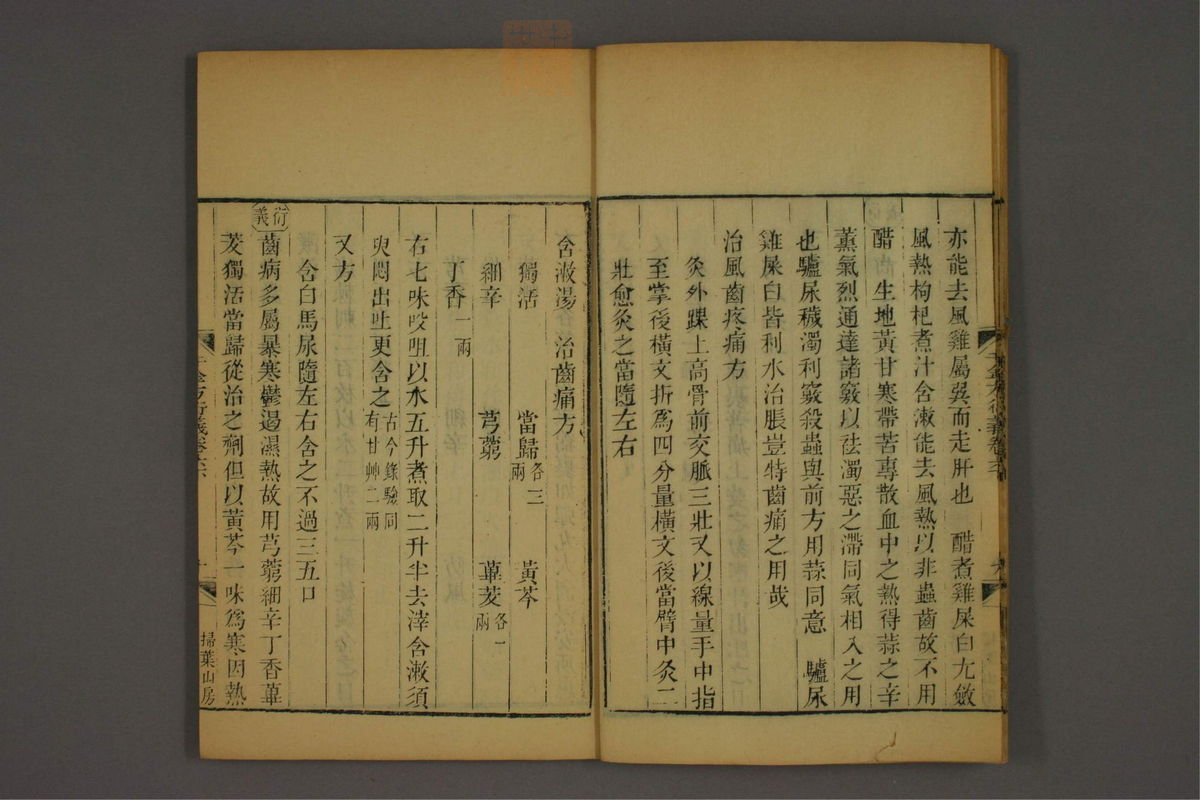 亦能去風雞屬巽而走肝也　醋煮雞屎白尤斂
風熱枸杞煮汁含漱能去風熱以非蟲齒故不用
醋　生地黃甘寒帶苦專散血中之熱得蒜之辛
薰氣烈通達諸竅以祛濁惡之滯同氣相入之用
也驢尿穢濁利竅殺蟲與前方用蒜同意　驢尿
雞屎白皆利水治脹豈特齒痛之用哉
治風齒疼痛方
灸外踝上高骨前交脈三壯又以線量手中指
至掌後橫文折爲四分量橫文後當臂中灸二
壯愈灸之當隨左右
含漱湯　治齒痛方
獨活　當歸各三兩　黃芩
細辛　芎藭　蓽茇各一兩
丁香一兩
右七味㕮咀以水五升煮取二升半去滓含漱須
臾悶出吐更含之古今錄驗同有甘艸二兩
又方
含白馬尿隨左右含之不過三五口
衍義
齒病多屬暴寒鬱遏濕熱故用芎藭細辛丁香蓽
茇獨活當歸從治之劑但以黃芩一味爲寒因熱
千金方衍義卷六
掃葉山房